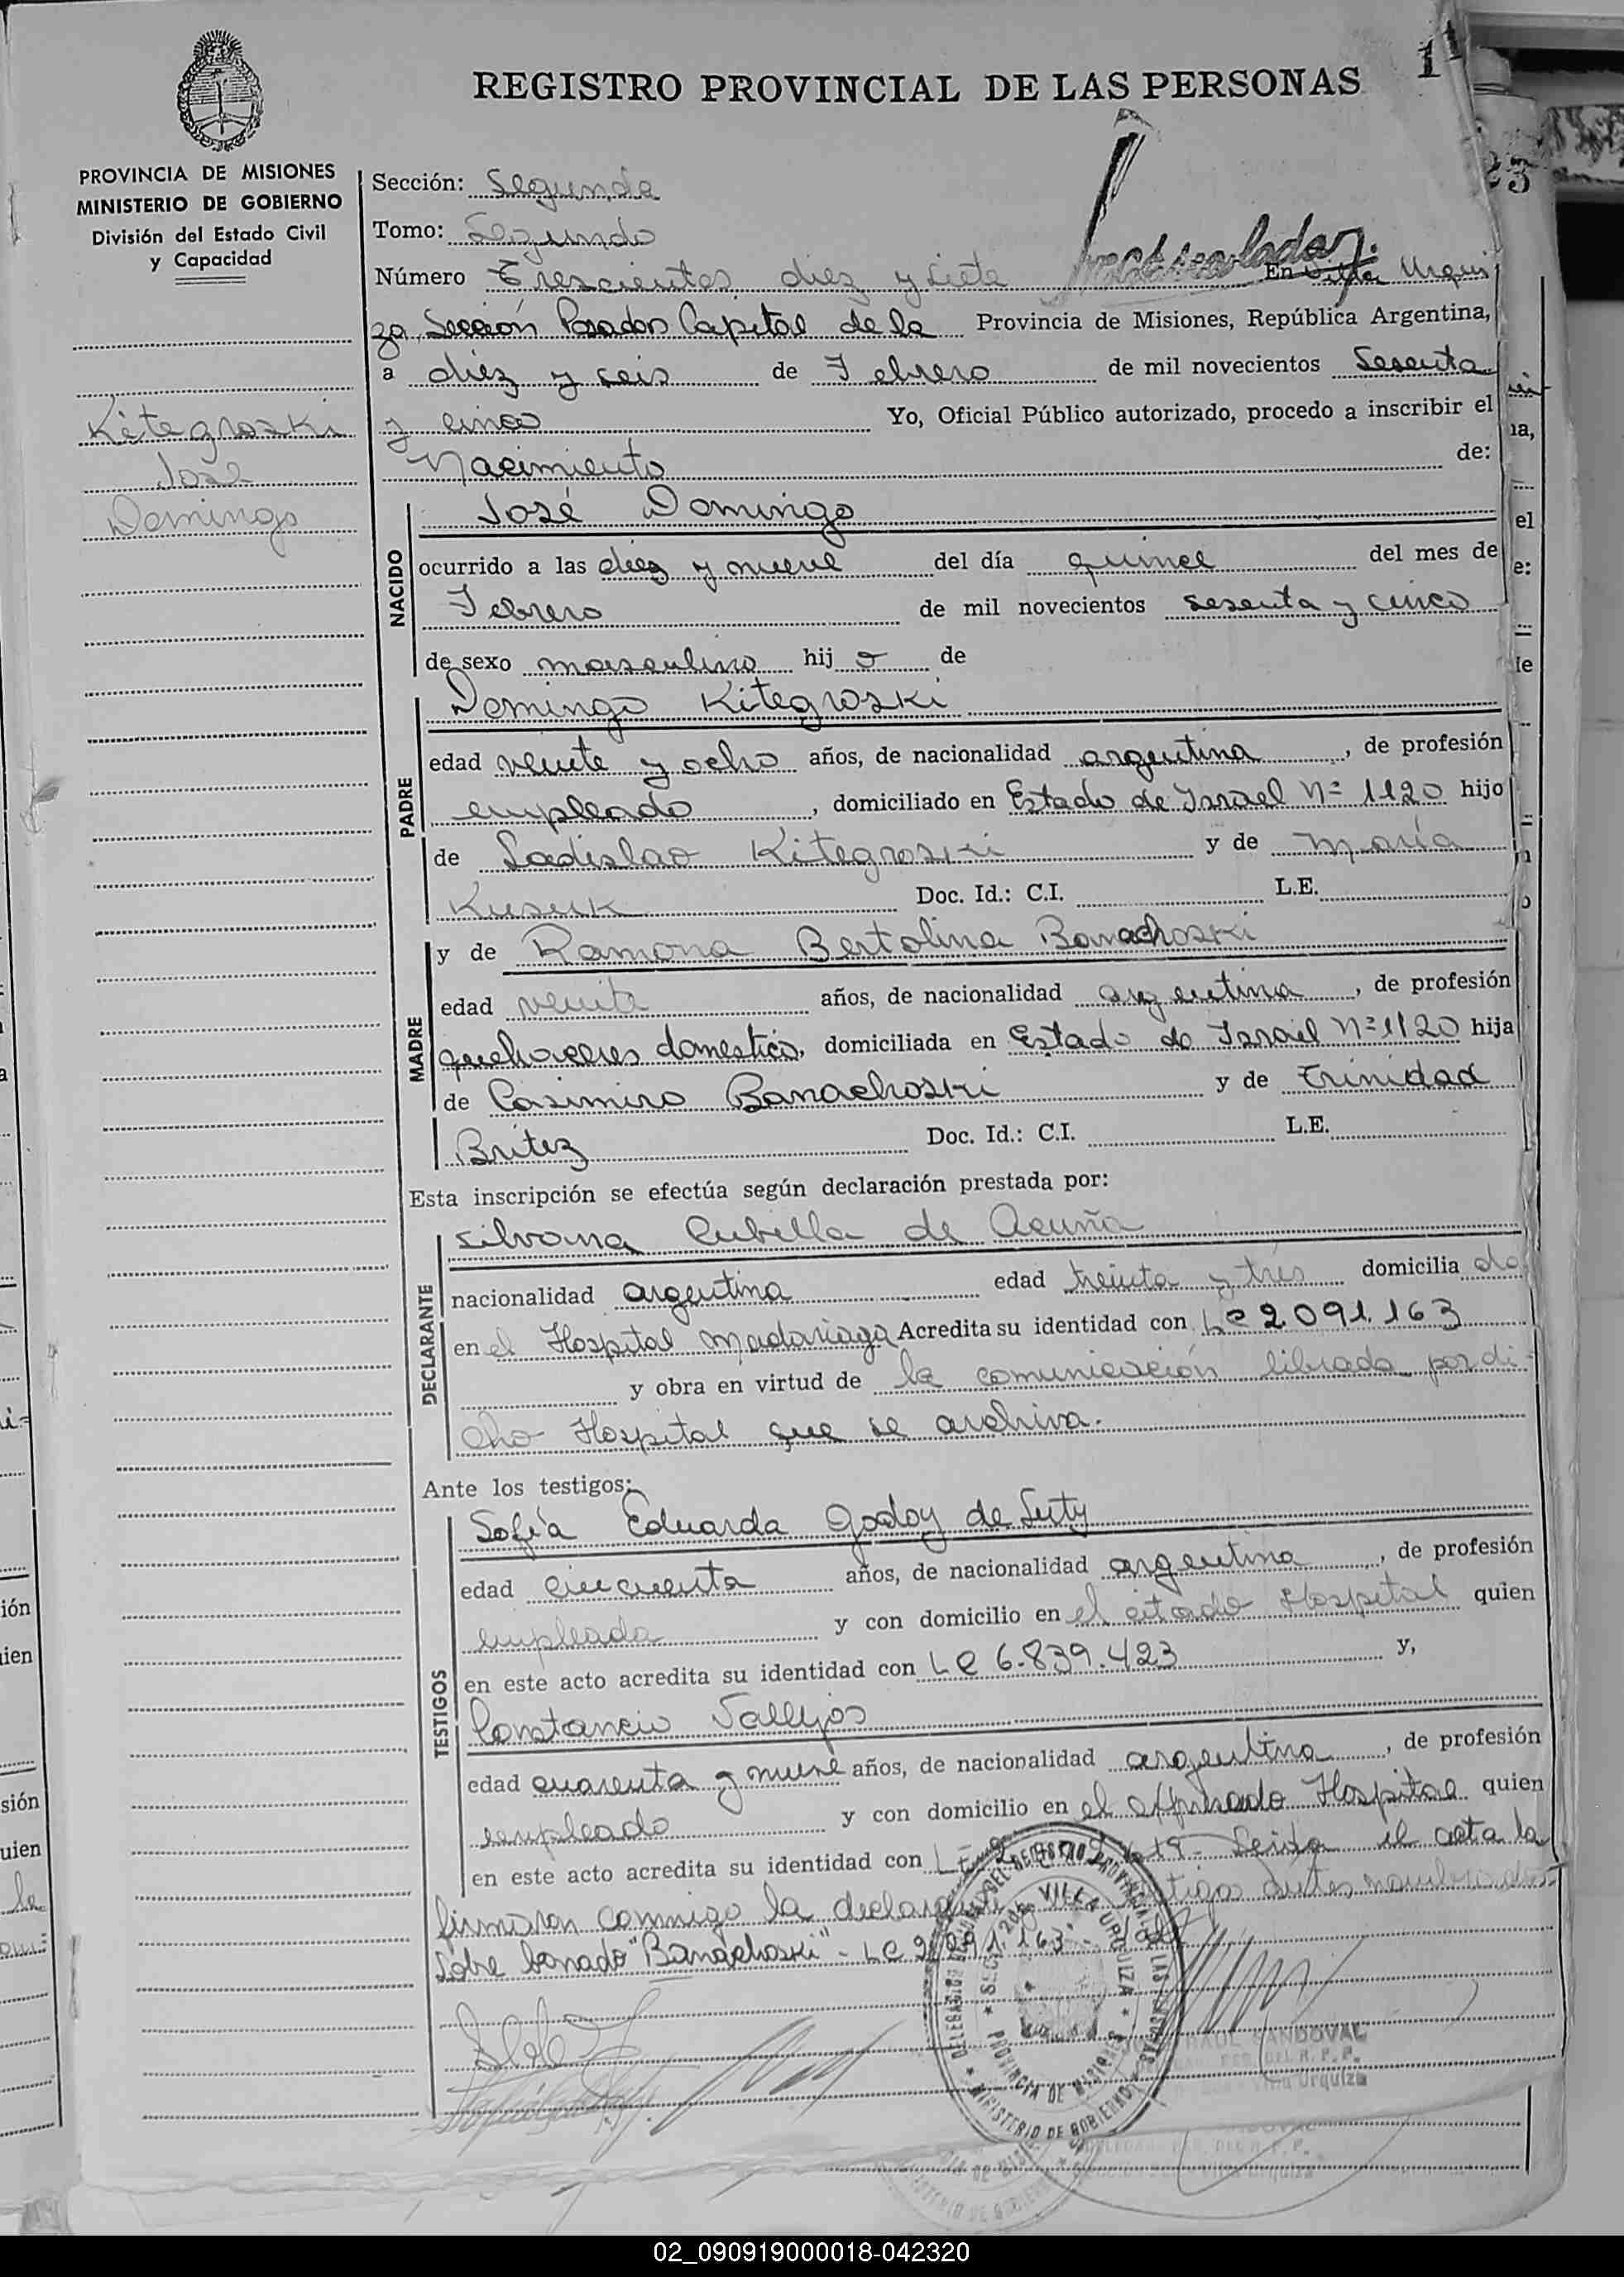 REGISTRO PROVINCIAL DE LAS PERSONAS
PROVINCIA DE MISIONES
MINISTERIO DE GOBIERNO
División del Estado Civil
y Capacidad
Kitegroski
José
Domingo
Sección: Segunda
Tomo: Segundo
Número Trescientos diez y siete En Villa Urqui
za, Sección Posadas Capital de la Provincia de Misiones, República Argentina,
a diez y seis de Febrero de mil novecientos Sesenta
y cinco Yo, Oficial Público autorizado, procedo a inscribir el
Nacimiento de:
NACIDO
José Domingo
ocurrido a las diez y nueve del día quince del mes de
Febrero de mil novecientos sesenta y cinco
de sexo masculino hij o de
PADRE
Domingo Kitegroski
edad veinte y ocho años, de nacionalidad argentina, de profesión
empleado, domiciliado en Estado de Israel Nº 1120 hijo
de Ladislao Kitegroski y de María
Kusuk Doc. Id.: C.I. L.E.
MADRE
y de Ramona Bertolina Banachoski
edad veinte años, de nacionalidad argentina, de profesión
quehaceres domestico, domiciliada en Estado de Israel Nº 1120 hija
de Casimiro Banachoski y de Trinidad
Britez Doc. Id.: C.I. L.E.
Esta inscripción se efectúa según declaración prestada por:
DECLARANTE
Silvana Cubilla de Acuña
nacionalidad argentina edad treinta y tres domicilia do
en el Hospital Madariaga Acredita su identidad con LC 2.091.163
y obra en virtud de la comunicación librada por di-
cho Hospital que se archiva.
Ante los testigos:
TESTIGOS
Sofía Eduarda Godoy de Suty
edad cincuenta años, de nacionalidad argentina, de profesión
empleada y con domicilio en el citado Hospital quien
en este acto acredita su identidad con LC 6.839.423 y,
Constancio Vallejos
edad cuarenta y nueve años, de nacionalidad argentina, de profesión
empleado y con domicilio en el expresado Hospital quien
en este acto acredita su identidad con L.E. Leida el acta la
firmaron conmigo la declarante testigos antes nombrados-
Sobre borrado "Banachoski" - LC 2.091.163-
DELEGACION DEL REGISTRO PROVINCIAL DE LAS PERSONAS
SECC. 20a VILLA URQUIZA
PROVINCIA DE MISIONES
MINISTERIO DE GOBIERNO
RAUL SANDOVAL
DEL R. P. P.
Villa Urquiza
02_090919000018-042320